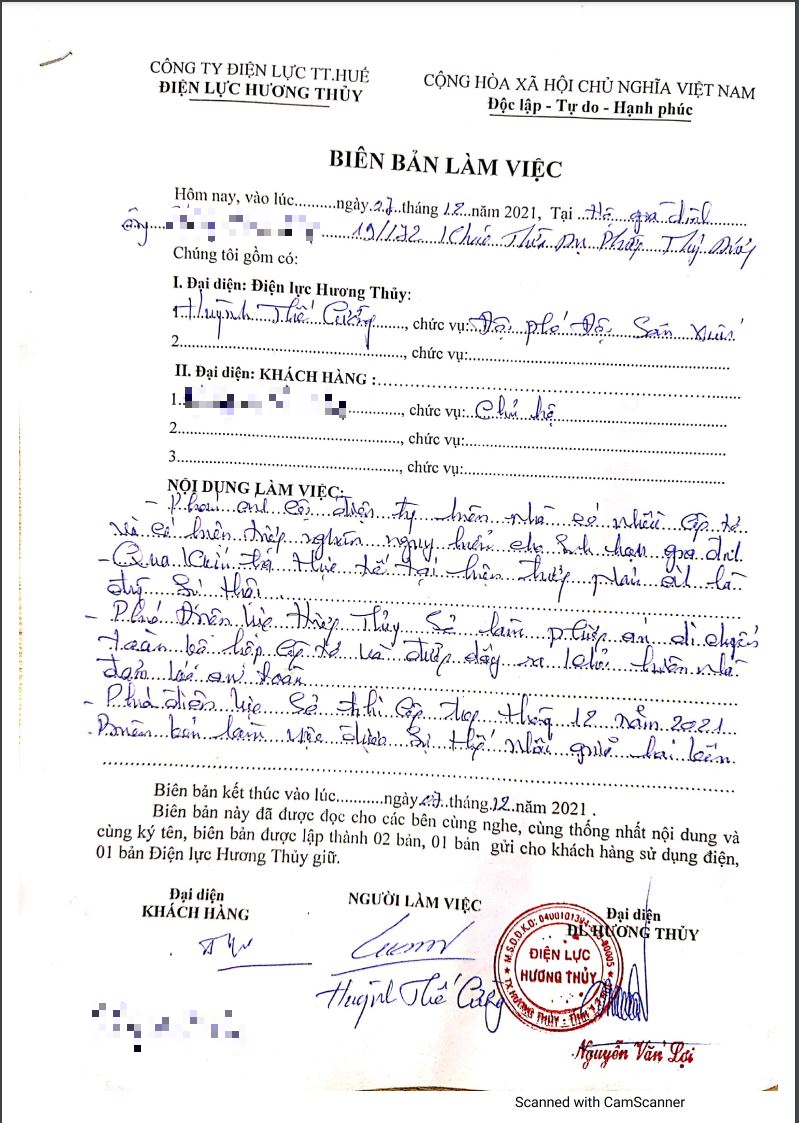 CÔNG TY ĐIỆN LỰC TT.HUẾ
ĐIỆN LỰC HƯƠNG THỦY
CỘNG HÒA XÃ HỘI CHỦ NGHĨA VIỆT NAM
Độc lập - Tự do - Hạnh phúc
BIÊN BẢN LÀM VIỆC
Hôm nay, vào lúc..........ngày 07 tháng 12 năm 2021, Tại Hộ gia đình
ông 19/172 Khúc Thừa Dụ Phường Thủy
Chúng tôi gồm có:
I. Đại diện: Điện lực Hương Thủy:
1. Huỳnh Thế Cường, chức vụ: Đội phó Đội Sản xuất
2..............................................., chức vụ:
II. Đại diện: KHÁCH HÀNG :
1..............................................., chức vụ: Chủ hộ
2..............................................., chức vụ:
3..............................................., chức vụ:
NỘI DUNG LÀM VIỆC:
- điện hiên nhà có nhiều
và có nguy hiểm cho gia đình
- Qua thực tế tại là
đúng sự thật.
- Phía Điện lực Hương Thủy sẽ làm di chuyển
toàn bộ hộp và đường dây ra khỏi hiên nhà
đảm bảo an toàn
- Phía điện lực sẽ thi tháng 12 năm 2021
Biên bản làm việc được sự thống nhất giữa hai bên
Biên bản kết thúc vào lúc...........ngày 07 tháng 12 năm 2021 .
Biên bản này đã được đọc cho các bên cùng nghe, cùng thống nhất nội dung và
cùng ký tên, biên bản được lập thành 02 bản, 01 bản gửi cho khách hàng sử dụng điện,
01 bản Điện lực Hương Thủy giữ.
Đại diện
KHÁCH HÀNG
NGƯỜI LÀM VIỆC
Đại diện
ĐL HƯƠNG THỦY
ĐIỆN LỰC
HƯƠNG THỦY
Huỳnh Thế Cường
Nguyễn Văn Lợi
Scanned with CamScanner